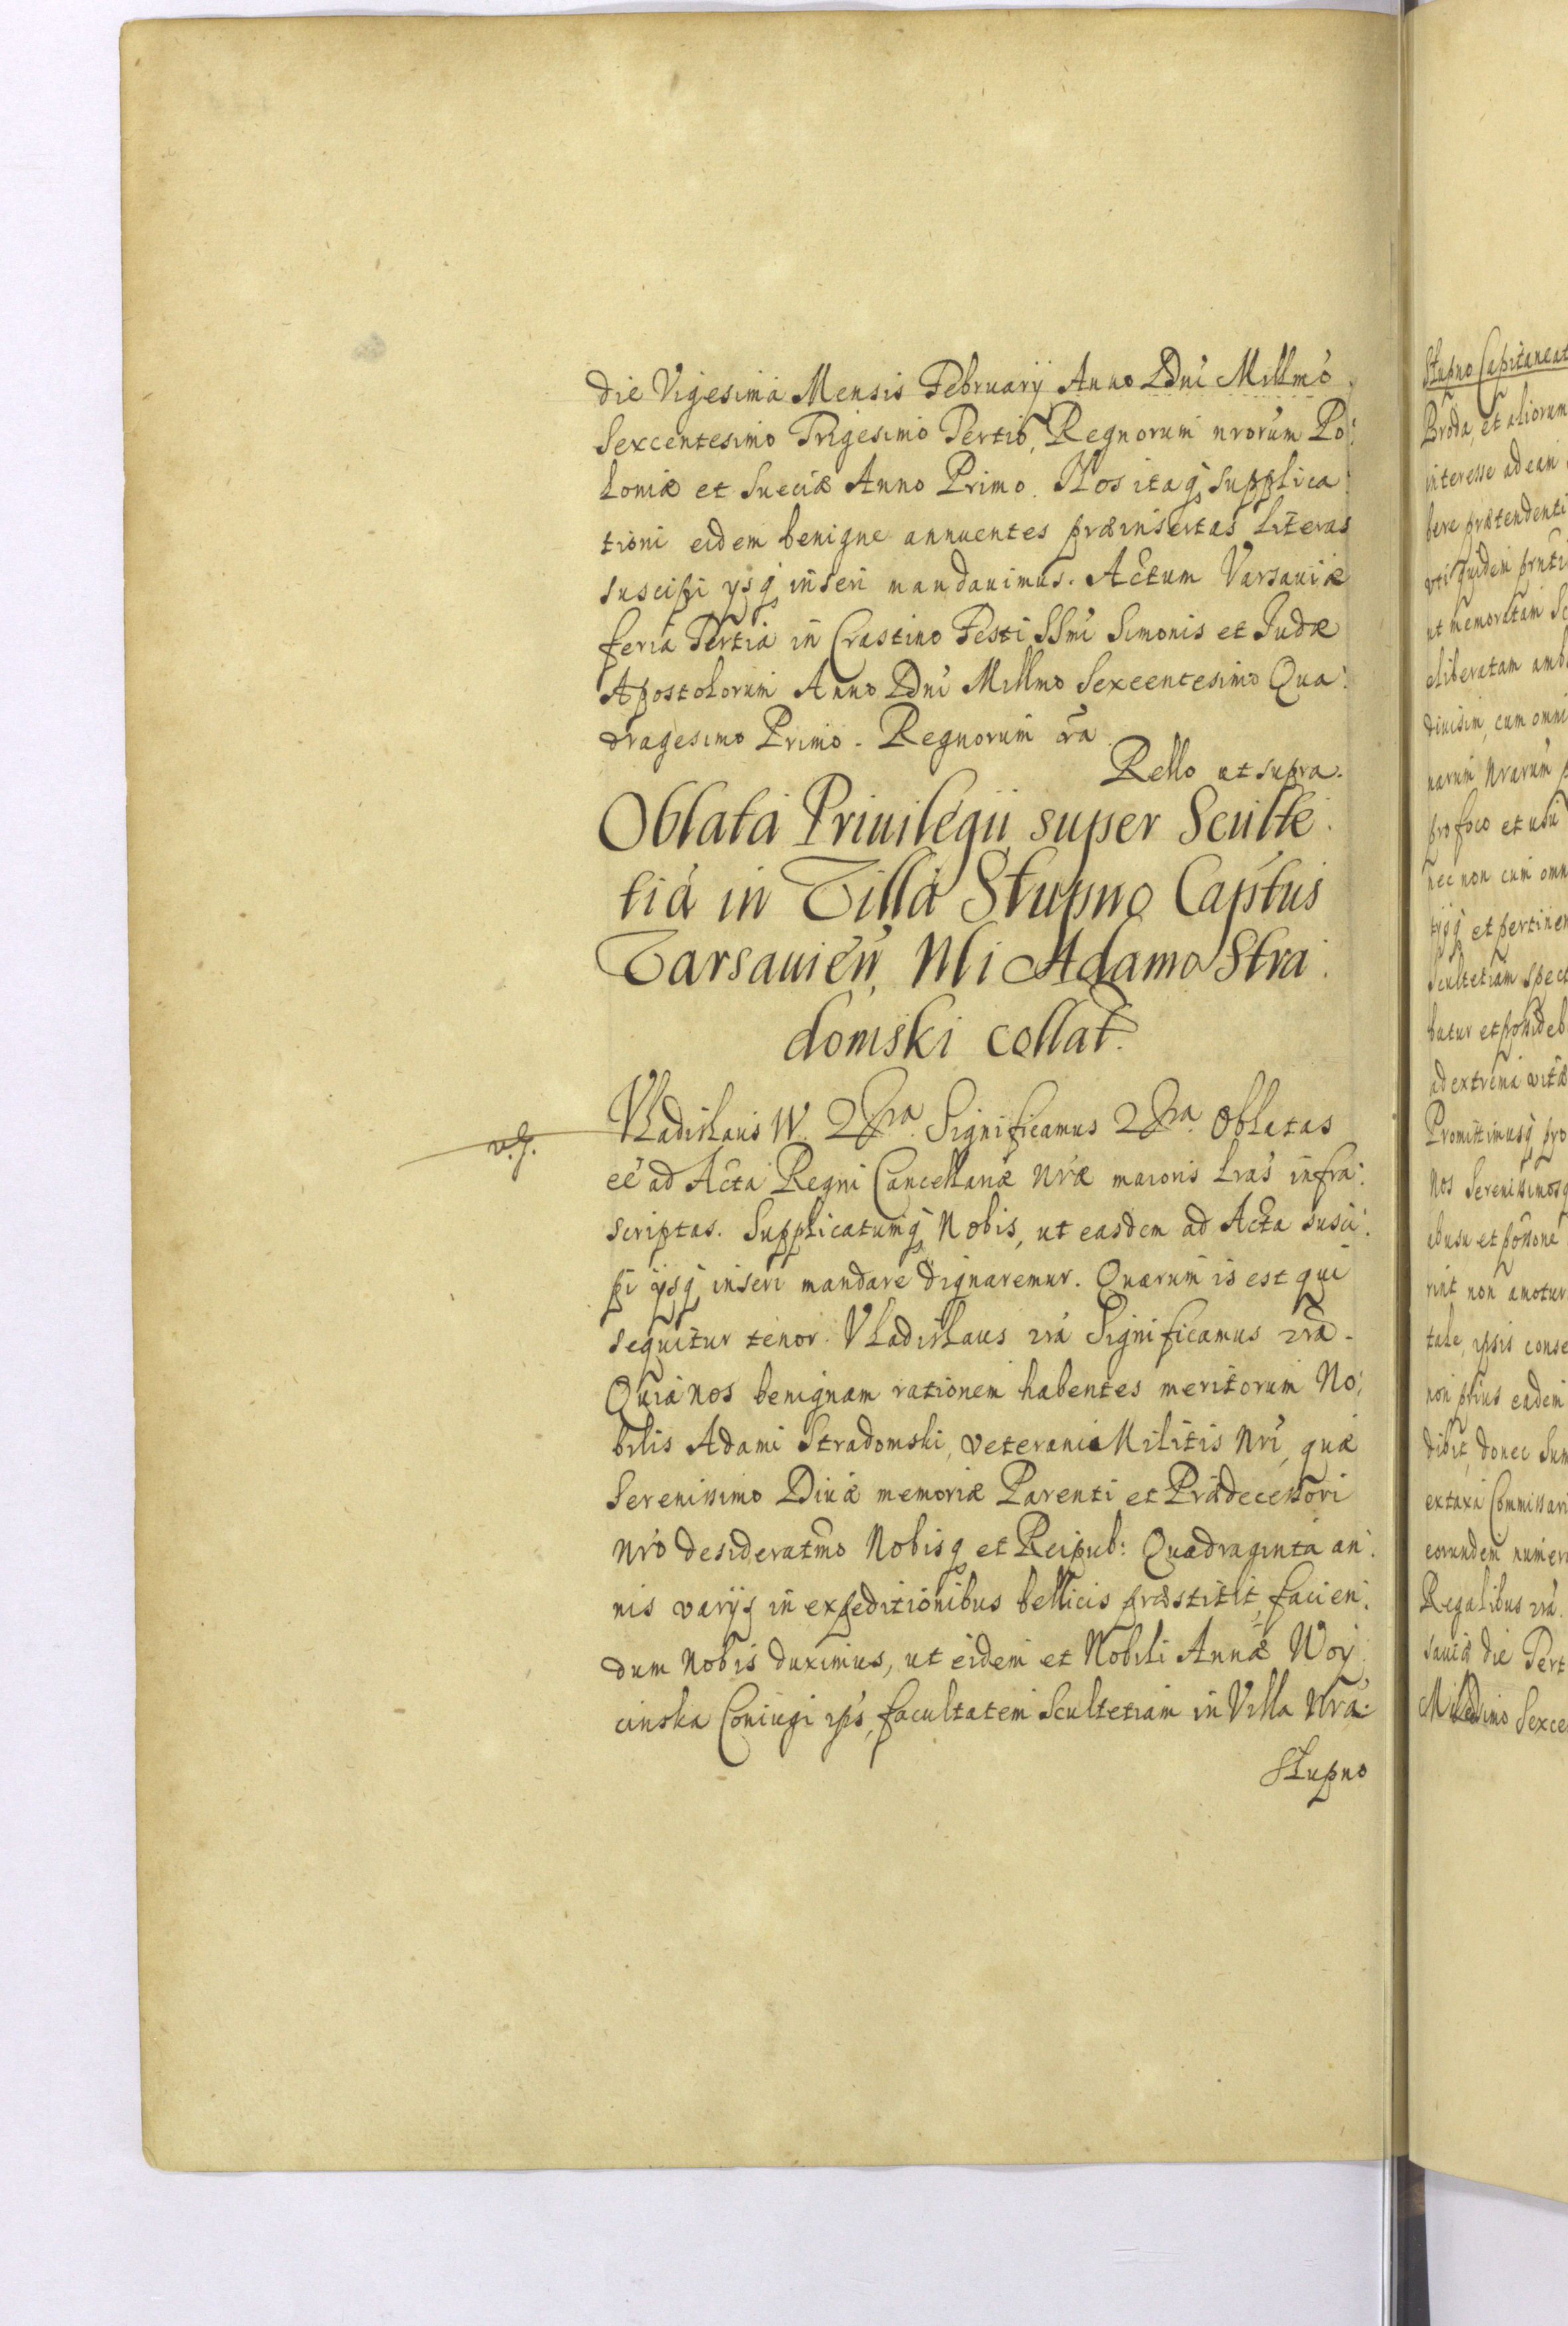 die Vigesima Mensis February Anno Dni Millmo
Sexcentesimo Trigesimo Tertio, Regnorum nrorum Po:
loniæ et Sueciæ Anno Primo. Nos itaq supplica:
tioni eidem benigne annuentes præinsertas literas
suscipi ysq inseri mandauimus. Actum Varsauiæ
feria Tertia in Crastino Festi SSmi Simonis et Judæ
Apostolorum Anno Dni Millmo Sexcentesimo Qua:
dragesimo Primo. Regnorum
Rello ut supra.
Oblata Priuilegii super Sculte:
tia in Villa Stupno Captus
Varsauien, Nli Adamo Stra:
domski collat.
v. s.
Vladislaus IV. 2ra Significamus 2ra Oblatas
eé ad Acta Regni Cancellariæ nræ maioris lras infra:
scriptas. Supplicatumq Nobis, ut easdem ad Acta susci:
pi ijsq inseri mandare dignaremur. Quarum is est qui
sequitur tenor. Vladislaus 2ra Significamus 2ra.
Quia nos benignam rationem habentes meritorum No:
bilis Adami Stradomski, veterani Militis Nri, quæ
Serenissimo Diuæ memoriæ Parenti et Prædecessori
Nro desideratmo Nobisq et Reipub: Quadraginta an:
nis varijs in expeditionibus bellicis præstitit, facien:
dum Nobis duximus, ut eidem et Nobili Annæ Woy
cinska Coniugi ips, facultatem Scultetiam in Villa Nra:
Stupno
Stupno Capitaneat
Broda, et aliorum
interesse ad eam
bere prætendenti
quidem
ut memoratam Sc
eliberatam amb
diuisim, cum omni
narum Nrarum
pro foco et usu
nec non cum omn
et pertinen
Scultetiam spect
batur et possideb
ad extrema vitæ
Promittimusq pro
Nos Serenissimosq
abusu et possone
rint non amotur
tale, ipsis conse
non prius eadem
dibit, donec Sum
extaxa Commissari
eorundem numer
Regalibus 2ra.
sauiæ die Tert
Millesimo Sexce